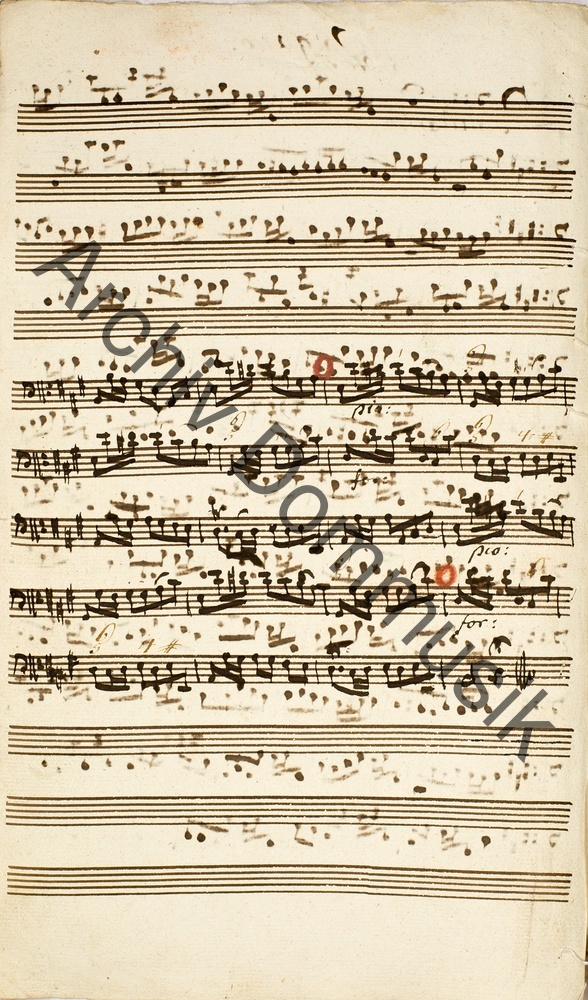 pia:
for:
pio:
for:
Archiv Dommusik